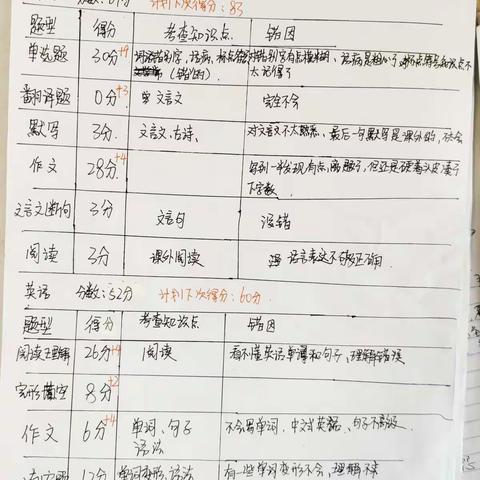 计划下次得分：83
题型 得分 考查知识点 错因
单选题 30分 +9
翻译题 0分 +3 文言文 完全不会
默写 3分 文言文、古诗、 对文言文不太熟悉、最后一句默写是课外的，不会
作文 28分 +4 写到一半发现有点离题了，但还是硬着头皮凑了
下字数
文言文断句 3分 文言句 没错
阅读 3分 课外阅读 语言表达不够正确
英语 分数：52分 计划下次得分：60分
题型 得分 考查知识点 错因
阅读理解 26分 +4 阅读 看不懂英语单词和句子、理解错误
完形填空 8分 +2
作文 6分 +4 单词、句子 不会写单词，中文式英语、句子不高级
语法
12分 单词变形、语法 有一些单词变形不会，理解不来